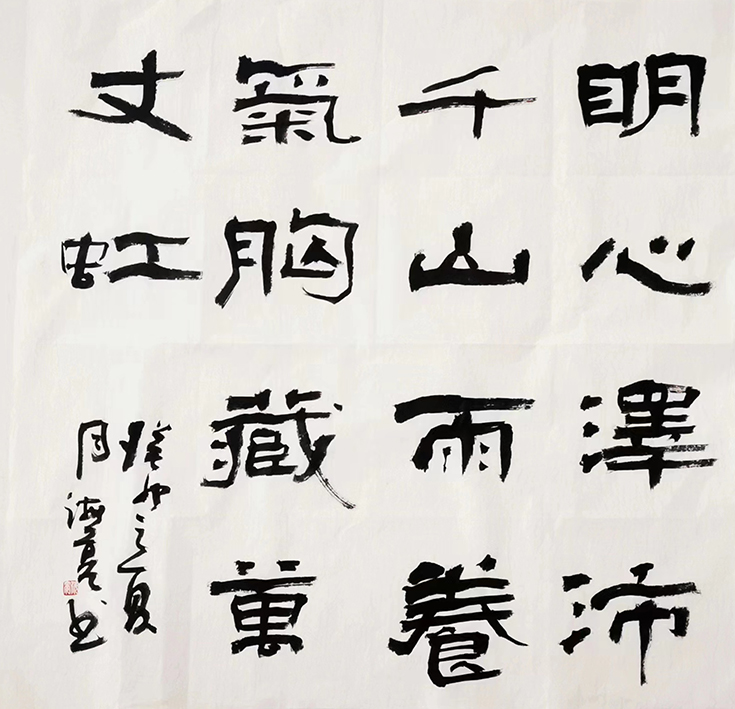 明心澤沛
千山雨養
氣胸藏萬
丈虹
癸卯之夏
月海亮书